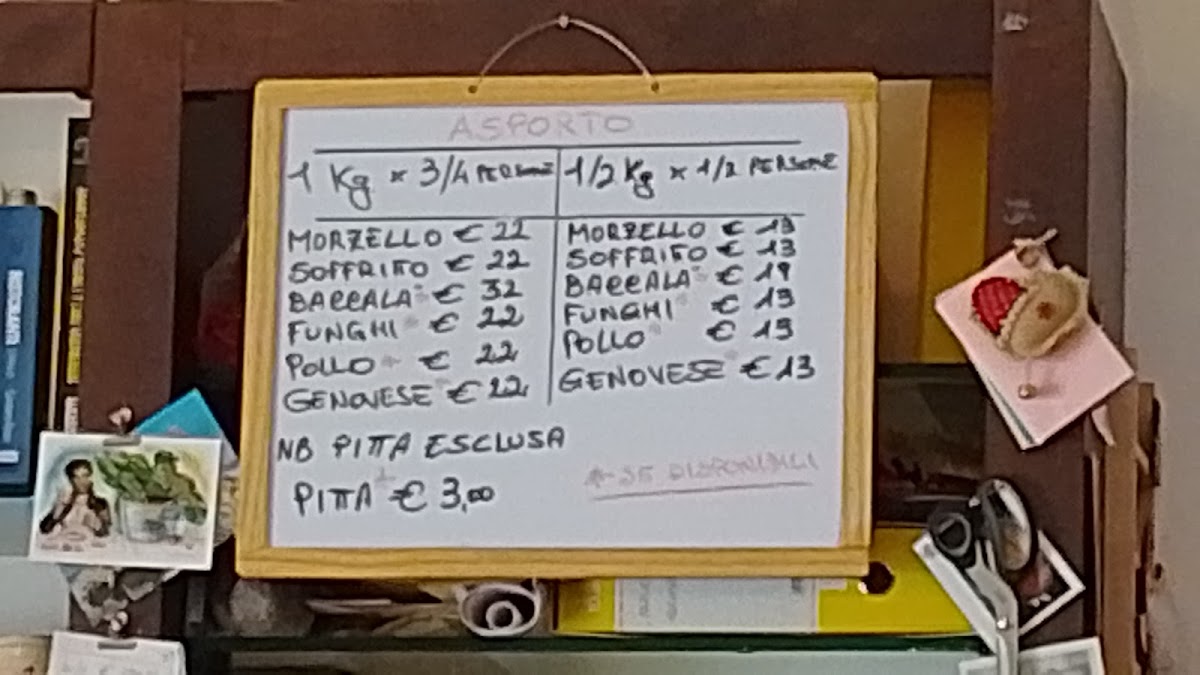 ASPORTO
1 Kg x 3/4 PERSONE
MORZELLO € 22
SOFFRITTO € 22
BACCALA* € 32
FUNGHI* € 22
POLLO* € 22
GENOVESE* € 22
1/2 Kg x 1/2 PERSONE
MORZELLO € 13
SOFFRITTO € 13
BACCALA* € 19
FUNGHI* € 13
POLLO* € 13
GENOVESE* € 13
NB PITTA ESCLUSA
PITTA* € 3,00
*SE DISPONIBILI